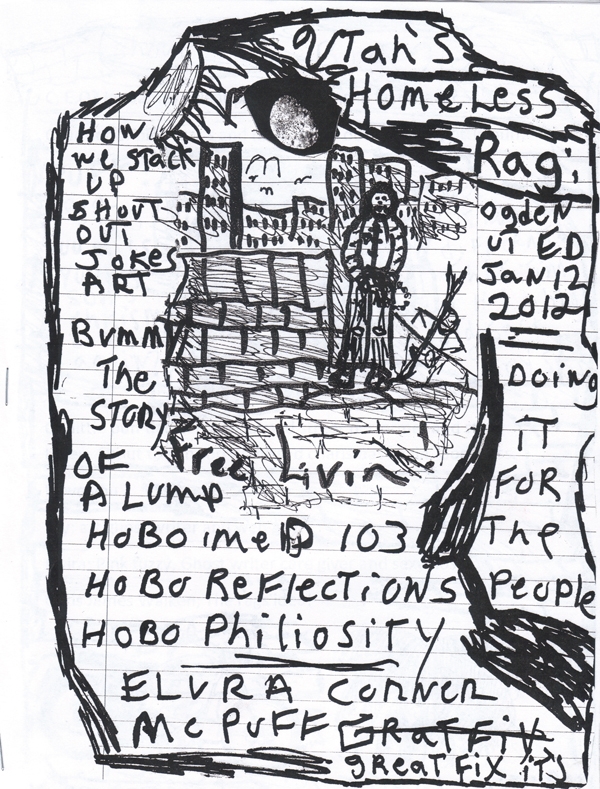 UTah'S
HomeLess
Rag;
OgdeN
UT ED
JaN 12
2012
DoiNg
iT
FoR
The
PeopLe
How
we STack
UP
SHOUT
OUT
JOKeS
ART
BUMMY
The
STORY
OF
A LUmp
Free Livin
HoBo imeD 103
HoBo ReFLecTioNS
HoBo PhiLioSiTY
ELVRA CoRNeR
Mc PUFF GRaTFiX
gReaT Fix iTS